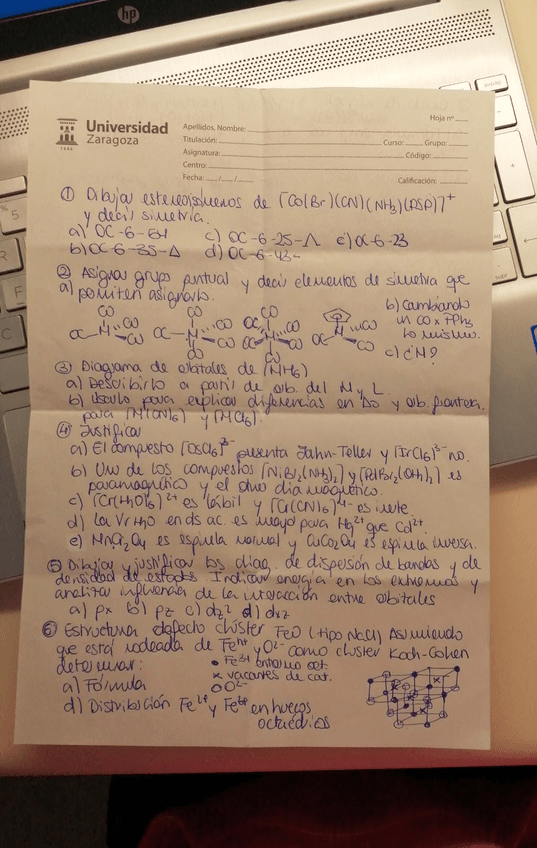 hp
Universidad
Zaragoza
1542
Hoja nº
Apellidos, Nombre:
Titulación: Curso: Grupo:
Asignatura: Código:
Centro:
Fecha: / / Calificación:
① Dibujar estereoisómeros de [Co(Br)(CN)(NH3)(DSP)]+
y decir simetría.
a) OC-6- c) OC-6-25-Λ e) OC-6-23
b) OC-6-35-Δ d) OC-6-43-
② Asignar grupo puntual y decir elementos de simetría que
a) permiten asignarlo.
CO CO CO
OC-M CO CO OC-M CO CO OC M CO CO OC M CO CO
CO CO
b) Cambiando
un CO x PPh3
lo mismo.
c) ¿M?
③ Diagrama de orbitales de [MH6)
a) Describirlo a partir de orb. del M y L.
b) Úsalo para explicar diferencias en Δo y orb. frontera
para [M(CN)6) y [MCl6).
④ Justificar
a) El compuesto [OsCl6]3- presenta Jahn-Teller y [IrCl6]3- no.
b) Uno de los compuestos [NiBr2(NH3)2] y [PdBr2(OH2)2] es
paramagnético y el otro diamagnético.
c) [Cr(H2O)6]2+ es lábil y [Cr(CN)6]4- es inerte.
d) La Vr H2O en ds ac. es mayor para Hg2+ que Cd2+.
e) MnCr2O4 es espinela normal y CuCo2O4 es espinela inversa.
⑤ Dibujar y justificar los diag. de dispersión de bandas y de
densidad de estados. Indicar energía en los extremos y
analizar influencia de la interacción entre orbitales
a) px b) pz c) dz2 d) dxz
⑥ Estructura defecto clúster FeO (tipo NaCl) Asumiendo
que está rodeada de Fen+ y O2- como cluster Koch-Cohen
determinar: • Fe3+ entorno tet.
× vacantes de cat.
a) Fórmula ○ O2-
d) Distribución Fe2+ y Fe3+ en huecos
octaédricos